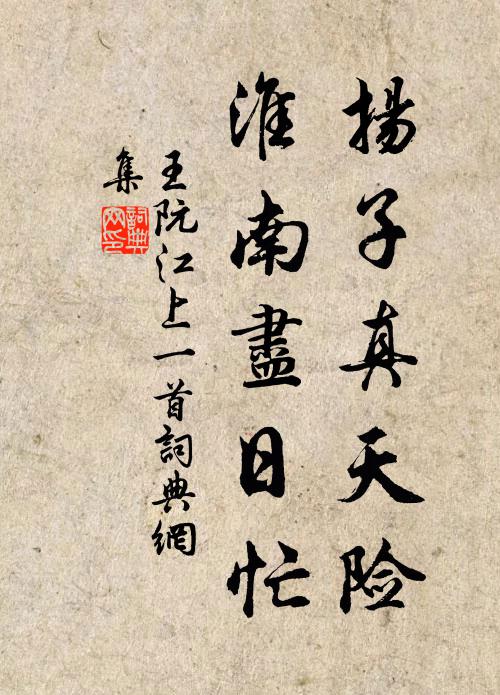 揚子真天险
淮南盡日忙
王阮江上一首詞典網
集
詞典網印